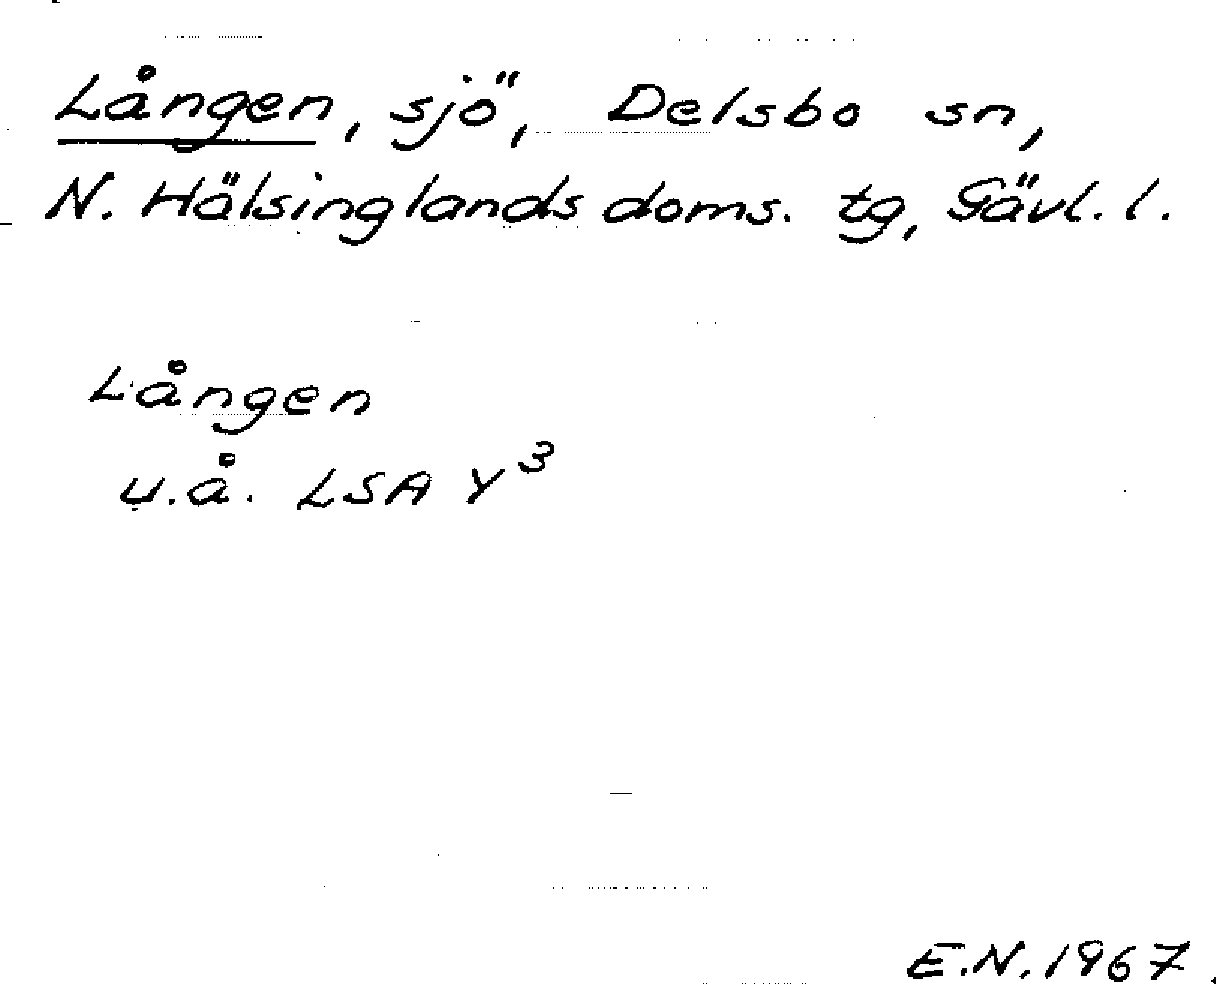 Lången, sjö, Delsbo sn,
N. Hälsinglands doms. tg, Gävl. l.
Lången
u.å. LSA Y³
E.N. 1967.